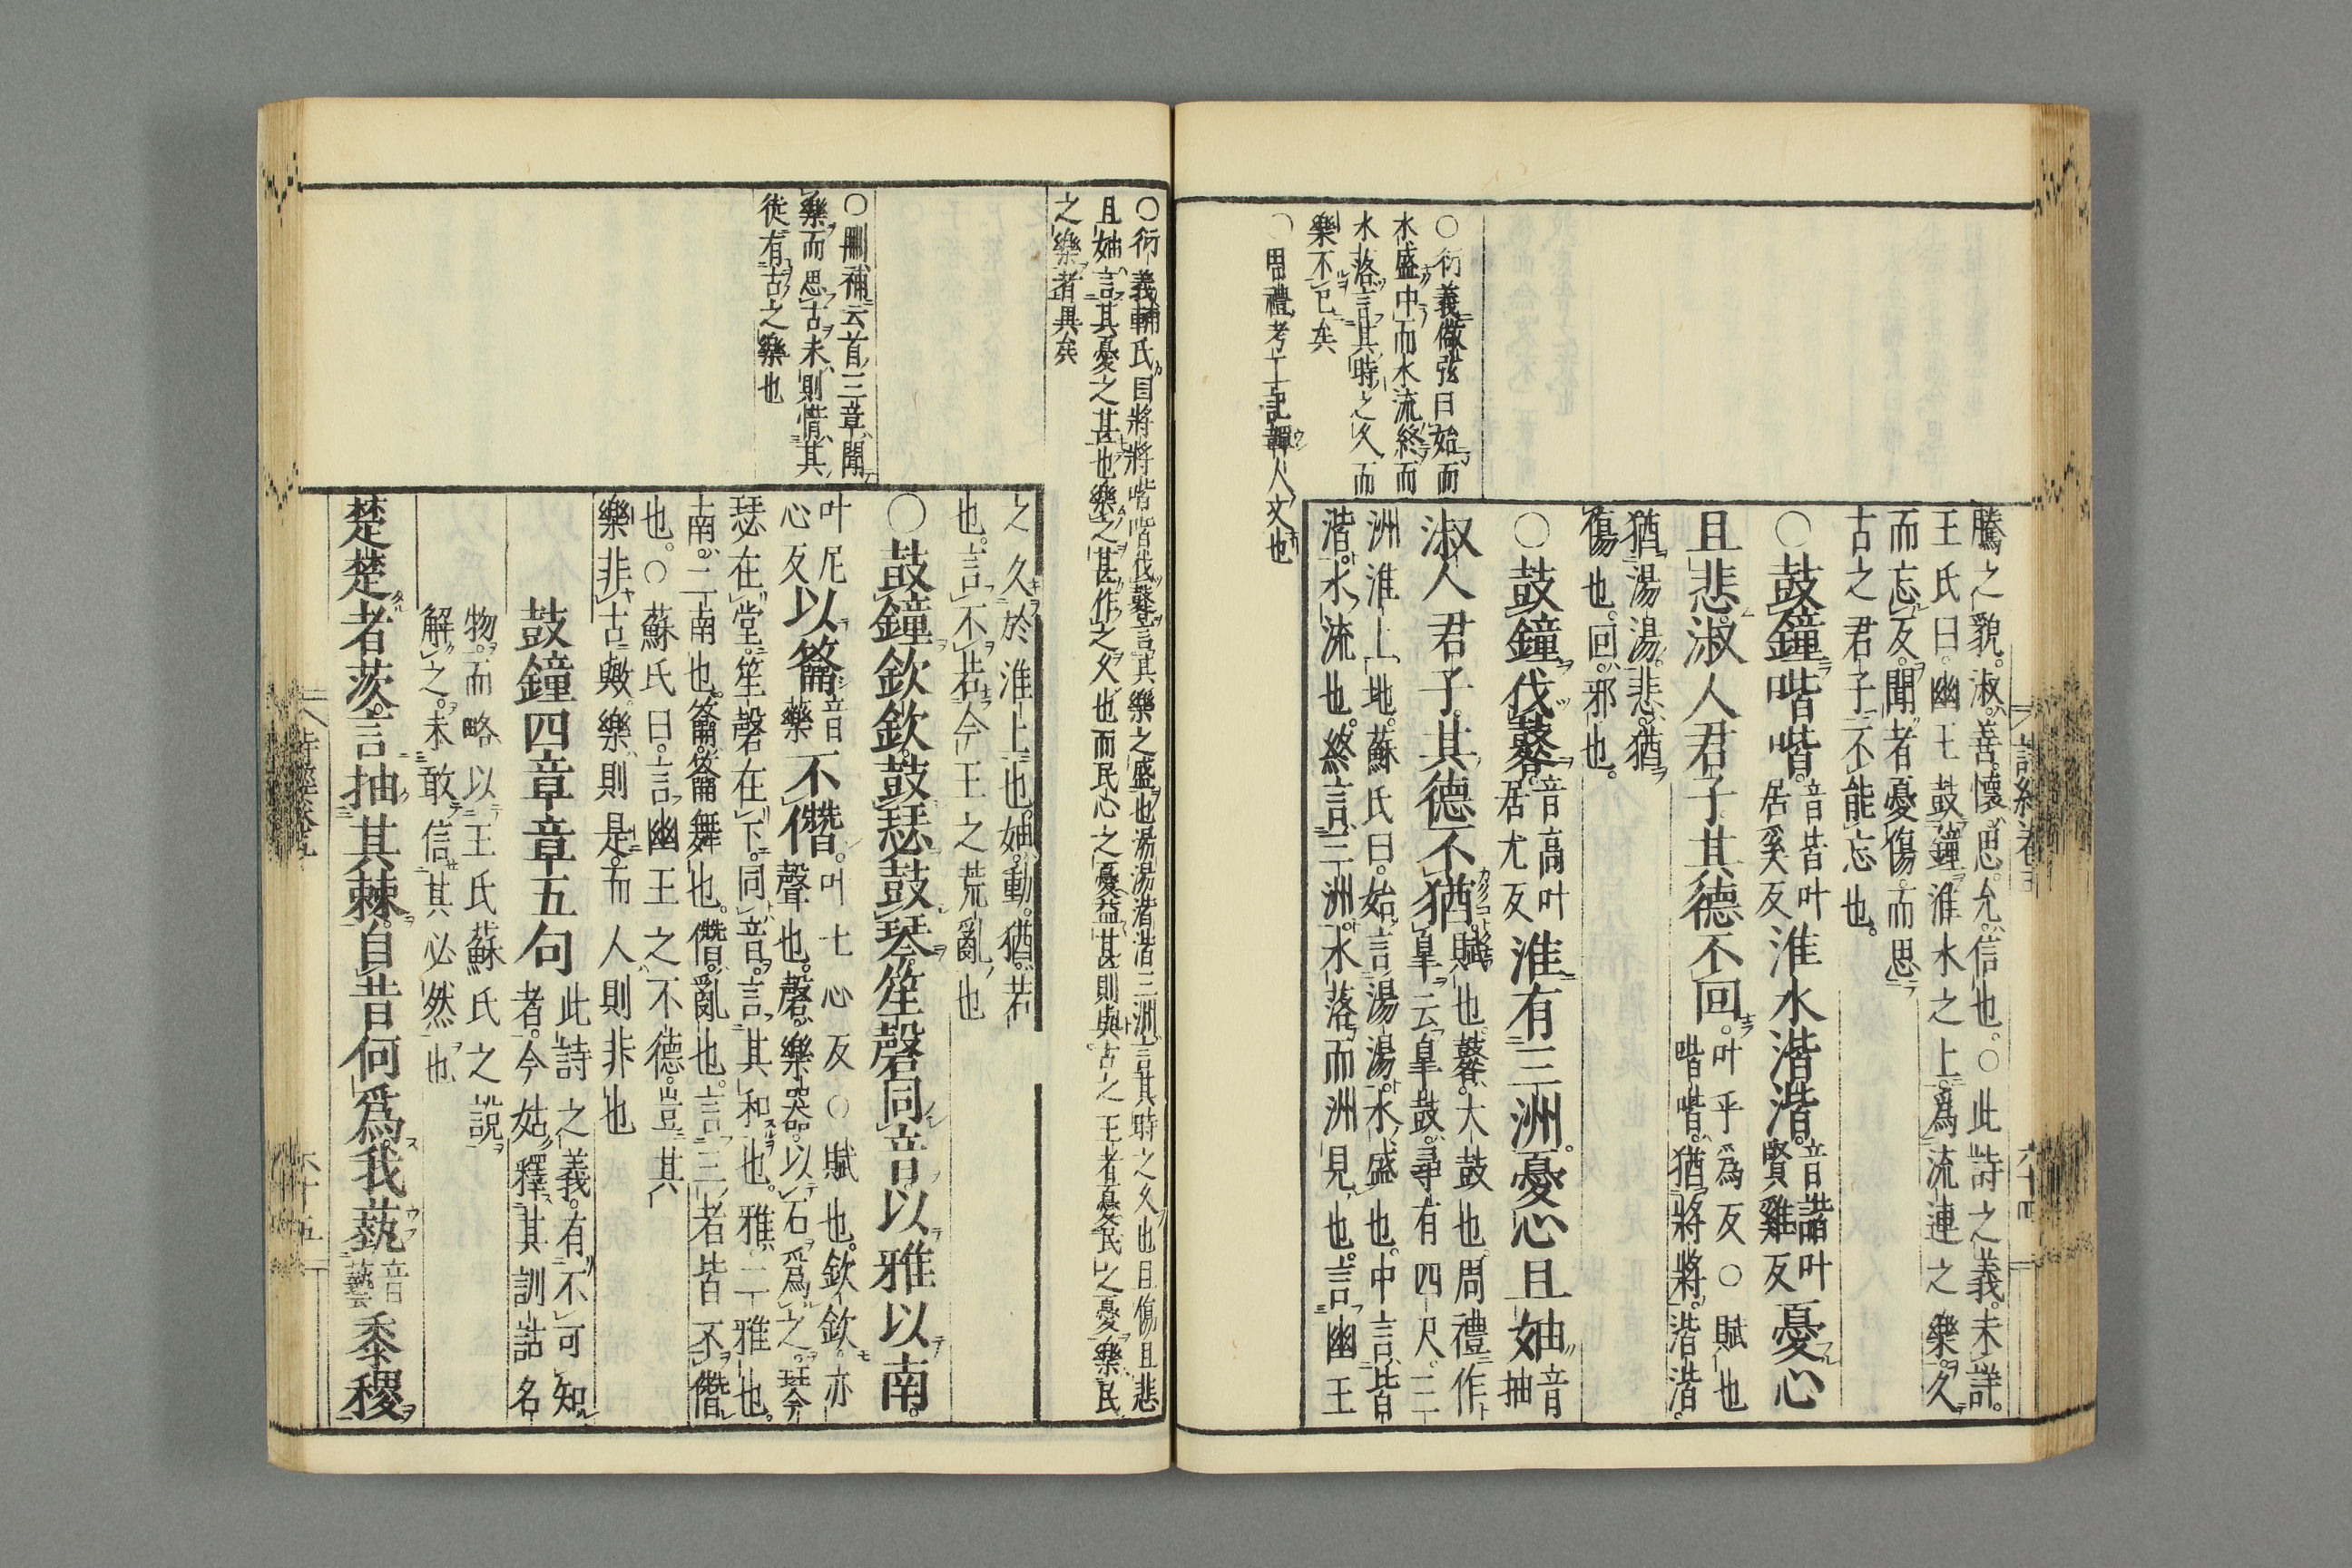 騰之貌。淑。善。懷。思。允。信也。○此詩之義。未詳。
王氏曰。幽王鼓鐘淮水之上。爲流連之樂。久
而忘反。聞者憂傷。而思
古之君子。不能忘也。
○鼓鐘喈喈。音皆叶居奚反淮水湝湝。音諧叶賢雞反憂心
且悲。淑人君子。其德不回。叶乎爲反○賦也喈喈。猶將將。湝湝。
猶湯湯。悲。猶
傷也。回。邪也。
○鼓鐘伐鼛。音高叶居尤反淮有三洲。憂心且妯。音抽
淑人君子。其德不猶。賦也。鼛。大鼓也。周禮作皐。云皐鼓。尋有四尺。三
洲。淮上地。蘇氏曰。始言湯湯。水盛也。中言湝
湝。水流也。終言三洲。水落而洲見也。言幽王
○衍義倣弦曰始而
水盛中而水流終而
水落言其時之久而
樂不已矣
○周禮考工記韗人文也
○衍義輔氏曰將將喈喈伐鼛言其樂之盛也湯湯湝湝三洲言其時之久也且傷且悲
且妯言其憂之甚也樂之甚作之久也而民心之憂益甚則與古之王者憂民之憂樂民
之樂者異矣
之久於淮上也。妯。動。猶。若
也。言不若今王之荒亂也
○鼓鐘欽欽。鼓瑟鼓琴。笙磬同音。以雅以南。
叶尼心反以籥音藥不僭。叶七心反○賦也。欽欽。亦聲也。磬。樂器。以石爲之。琴
瑟在堂。笙磬在下。同音。言其和也。雅。二雅也。
南。二南也。籥。籥舞也。僭。亂也。言三者皆不僭
也。○蘇氏曰。言幽王之不德。豈其
樂非古與。樂則是。而人則非也
鼓鐘四章章五句此詩之義。有不可知者。今姑釋其訓詁名
物。而略以王氏蘇氏之說
解之。未敢信其必然也
楚楚者茨。言抽其棘。自昔何爲。我蓺音藝黍稷
○刪補云首三章聞
樂而思古未則惜其
徒有古之樂也